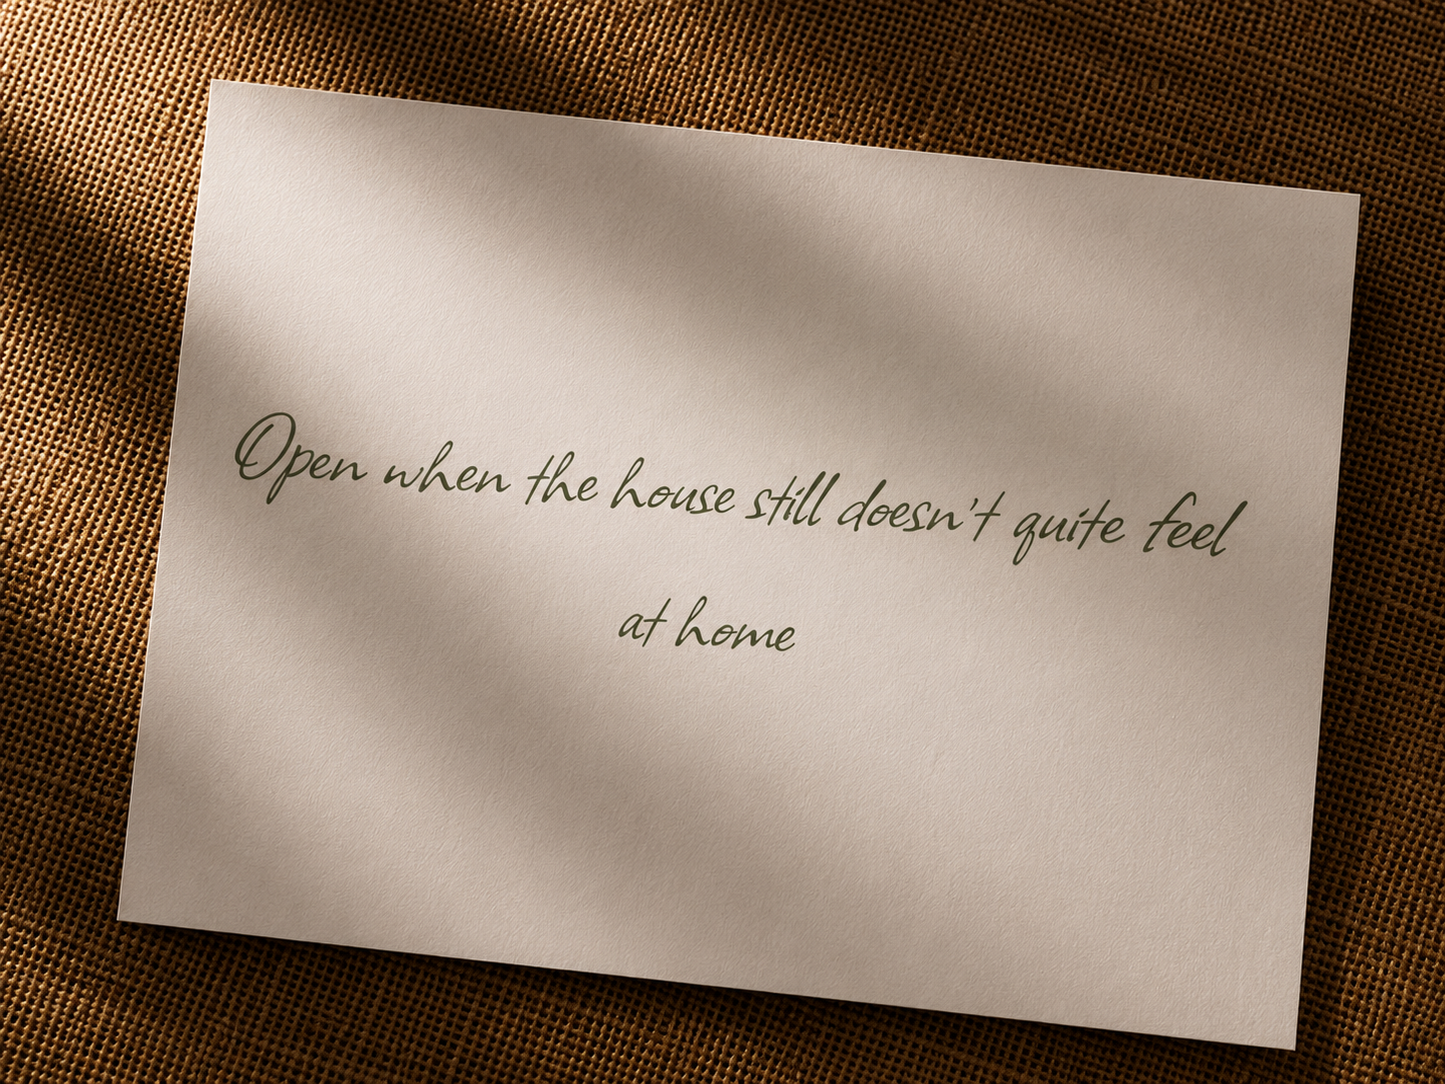 Open when the house still doesn't quite feel
at home